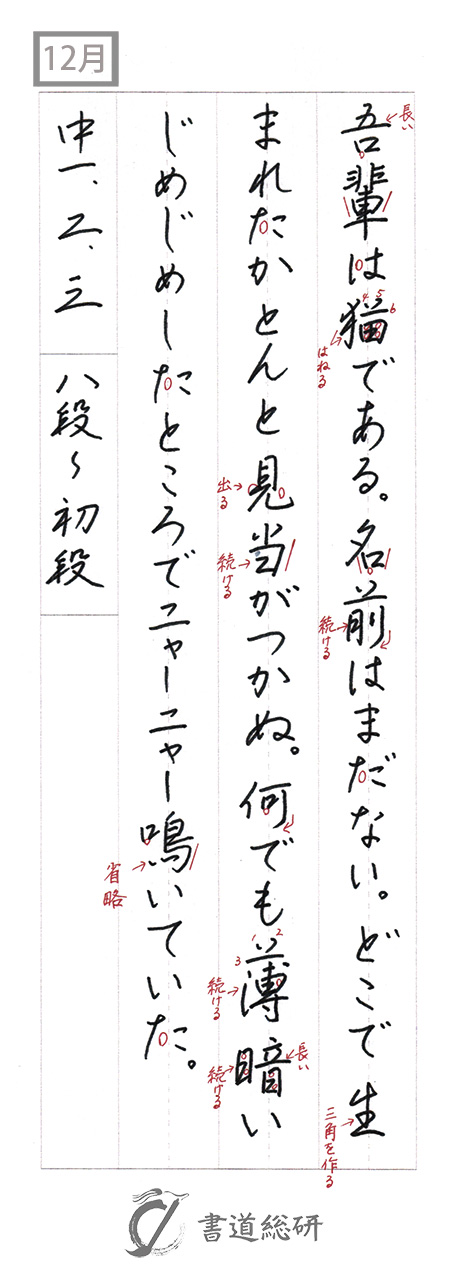 12月
吾輩は猫である。名前はまだない。どこで生
まれたかとんと見当がつかぬ。何でも薄暗い
じめじめしたところでニャーニャー鳴いていた。
中一、二、三
八段～初段
長い
はねる
4 5 6
続ける
三角を作る
出る
続ける
1 2 3
続ける
長い
続ける
省略
書道総研